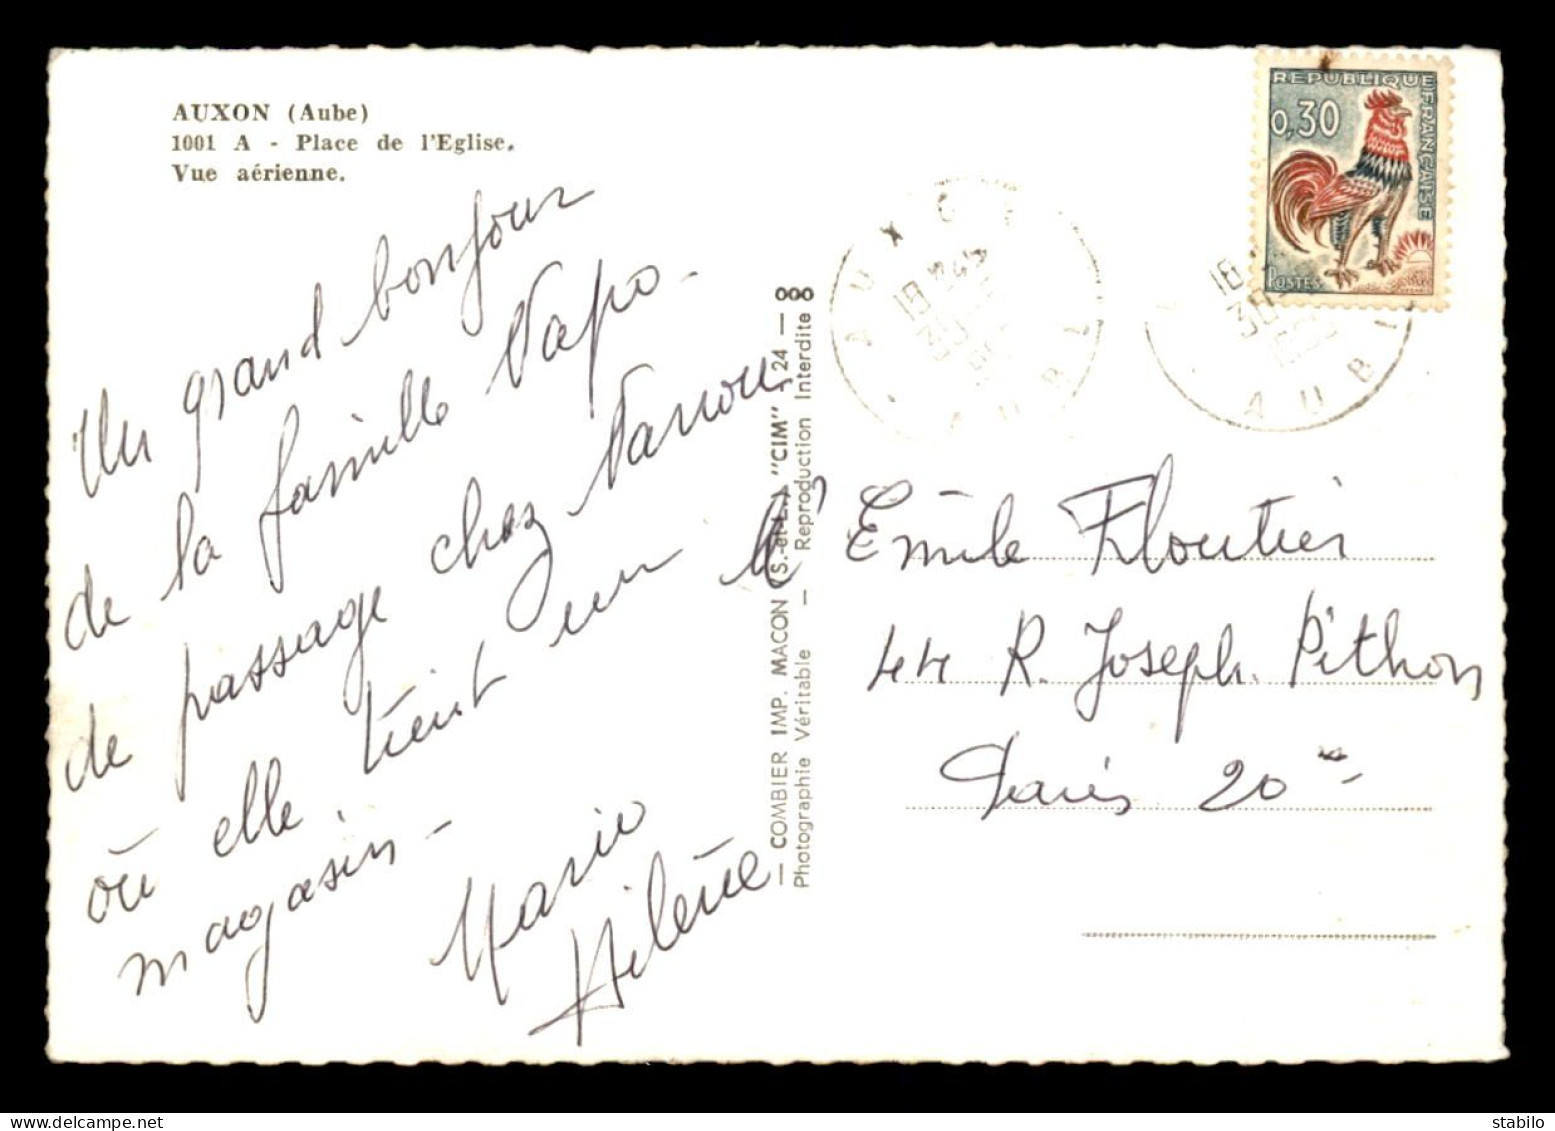 AUXON (Aube)
1001 A - Place de l'Eglise.
Vue aérienne.
Un grand bonjour
de la famille Napo -
de passage chez Nanou
où elle tient un
magasin -
Marie
Hélène
— COMBIER IMP. MACON (S.-et-L.) "CIM" T 24 —
Photographie Véritable — Reproduction Interdite
REPUBLIQUE FRANCAISE
0,30
POSTES
AUXON
18
30
AUBE
18
30
AUBE
Emile Floutier
44 R. Joseph. Pithon
Paris 20
stabilo